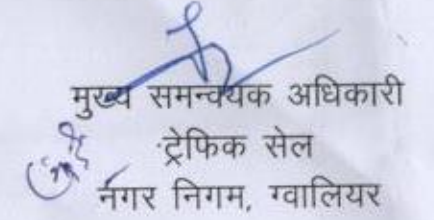 मुख्य समन्वयक अधिकारी
ट्रेफिक सेल
नगर निगम, ग्वालियर